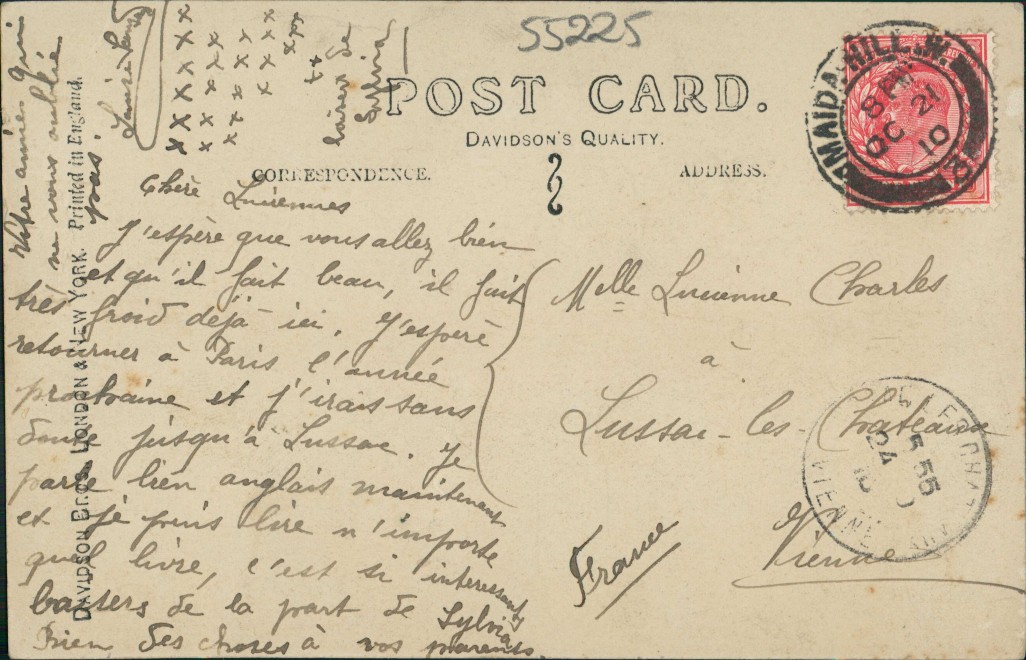 55225
POST CARD.
DAVIDSON'S QUALITY.
CORRESPONDENCE.
ADDRESS.
MAIDA HILL. W.
8 AM
OC 21
10
Chère Lucienne
J'espère que vous allez bien
et qu'il fait beau, il fait
très froid déjà ici. J'esperè
retourner à Paris l'année
prochaine et j'irais sans
doute jusqu'à Lussac. Je
parle bien anglais maintenant
et je puis lire n'importe
quel livre, c'est si interessant
baisers de la part de Sylvia
Bien des choses à vos parents.
Votre amie qui
ne vous oublie
pas
Louise
x x x x x x x
x x x x x
x x x x x
x x x x
x x x
x x
baisers de
Sylvia
Melle Lucienne Charles
à
Lussac-les-Chateaux
Vienne
France
LES CHATEAUX
5 55
24
VIENNE
DAVIDSON BROS. LONDON & NEW YORK. Printed in England.